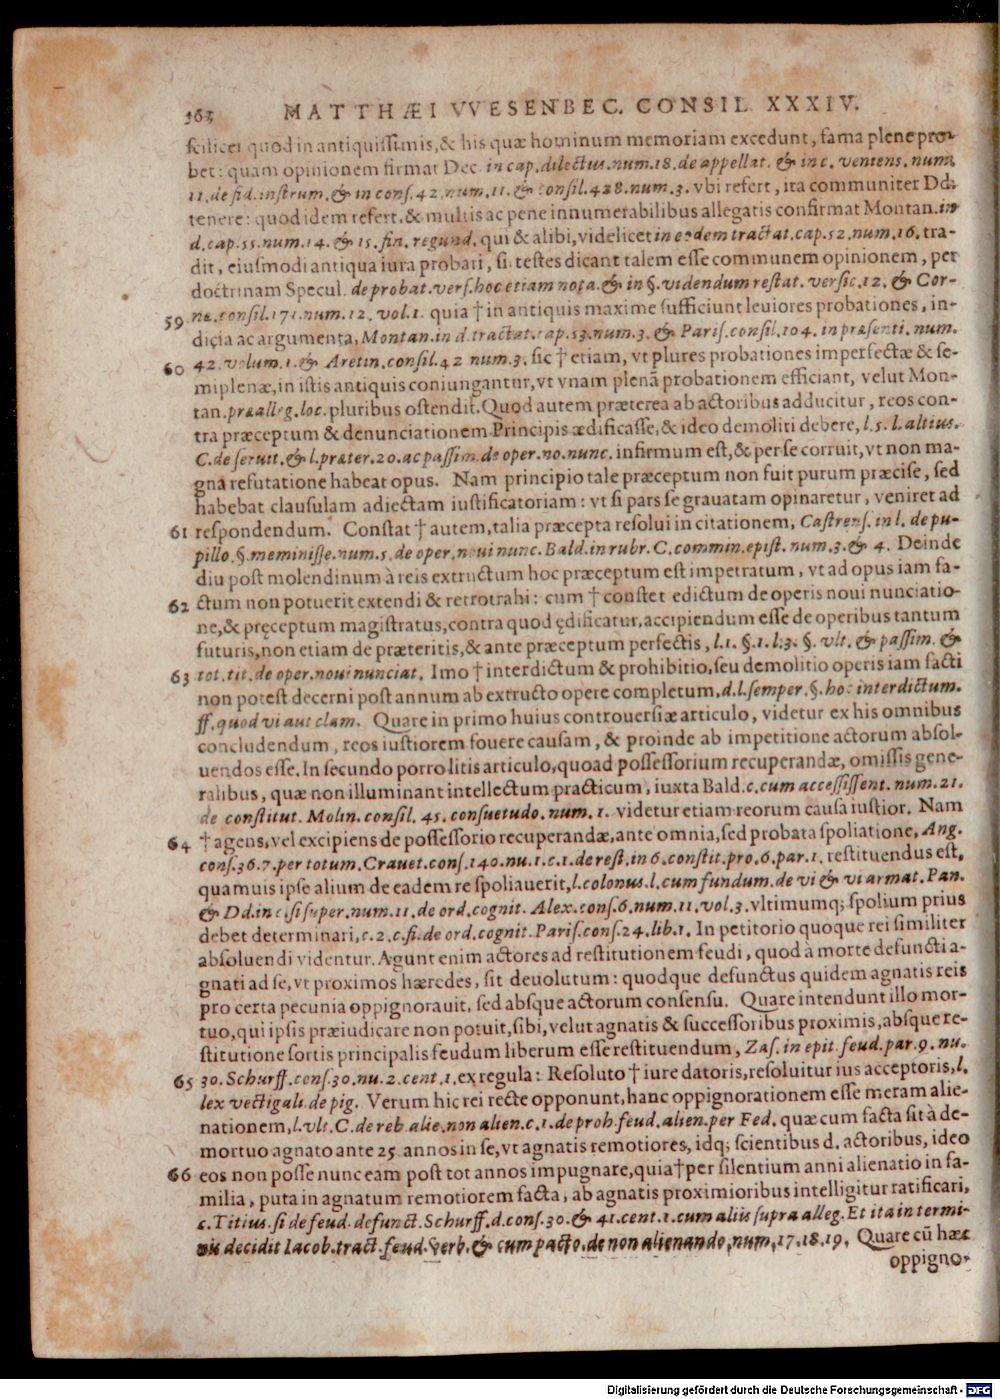 363 MATTHÆI VVESENBEC. CONSIL. XXXIV.
scilicet quod in antiquissimis, & his quæ hominum memoriam excedunt, fama plene pro-
bet: quam opinionem firmat Dec. in cap. dilectus. num. 18. de appellat. & in c. veniens. num.
11. de fid. instrum. & in cons. 42. num. 11. & consil. 428. num. 3. vbi refert, ita communiter Dd.
tenere: quod idem refert, & multis ac pene innumerabilibus allegatis confirmat Montan. in
d. cap. 55. num. 14. & 15. fin. regund. qui & alibi, videlicet in eodem tractat. cap. 52. num. 16. tra-
dit, eiusmodi antiqua iura probari, si testes dicant talem esse communem opinionem, per
doctrinam Specul. de probat. vers. hoc etiam nota. & in §. videndum restat. versic. 12. & Cor-
59 ne. consil. 171. num. 12. vol. 1. quia † in antiquis maxime sufficiunt leuiores probationes, in-
dicia ac argumenta, Montan. in d. tractat. cap. 53. num. 3. & Paris. consil. 104. in præsenti. num.
60 42. volum. 1. & Aretin. consil. 42 num. 3. sic † etiam, vt plures probationes imperfectæ & se-
miplenæ, in istis antiquis coniungantur, vt vnam plenā probationem efficiant, velut Mon-
tan. præalleg. loc. pluribus ostendit. Quod autem præterea ab actoribus adducitur, reos con-
tra præceptum & denunciationem Principis ædificasse, & ideo demoliti debere, l. 5. l. altius.
C. de seruit. & l. præter. 20. ac passim de oper. no. nunc. infirmum est, & per se corruit, vt non ma-
gna refutatione habeat opus. Nam principio tale præceptum non fuit purum præcise, sed
habebat clausulam adiectam iustificatoriam: vt si pars se grauatam opinaretur, veniret ad
61 respondendum. Constat † autem, talia præcepta resolui in citationem, Castrens. in l. de pu-
pillo. §. meminisse. num. 5. de oper. noui nunc. Bald. in rubr. C. commin. epist. num. 3. & 4. Deinde
diu post molendinum à reis extructum hoc præceptum est impetratum, vt ad opus iam fa-
62 ctum non potuerit extendi & retrotrahi: cum † constet edictum de operis noui nunciatio-
ne, & pręceptum magistratus, contra quod ędificatur, accipiendum esse de operibus tantum
futuris, non etiam de præteritis, & ante præceptum perfectis, l. 1. §. 1. l. 3. §. vlt. & passim. &
63 tot. tit. de oper. noui nunciat. Imo † interdictum & prohibitio, seu demolitio operis iam facti
non potest decerni post annum ab extructo opere completum, d. l. semper. §. hoc interdictum.
ff. quod vi aut clam. Quare in primo huius controuersiæ articulo, videtur ex his omnibus
concludendum, reos iustiorem fouere causam, & proinde ab impetitione actorum absol-
uendos esse. In secundo porro litis articulo, quoad possessorium recuperandæ, omissis gene-
ralibus, quæ non illuminant intellectum practicum, iuxta Bald. c. cum accessissent. num. 21.
de constitut. Molin. consil. 45. consuetudo. num. 1. videtur etiam reorum causa iustior. Nam
64 † agens, vel excipiens de possessorio recuperandæ, ante omnia, sed probata spoliatione, Ang.
cons. 36. 7. per totum. Crauet. cons. 140. nu. 1. c. 1. de rest. in 6. constit. pro. 6. par. 1. restituendus est,
quamuis ipse alium de eadem re spoliauerit, l. colonus. l. cum fundum. de vi & vi armat. Pan.
& Dd. in c. si super. num. 11. de ord. cognit. Alex. cons. 6. num. 11. vol. 3. vltimumq; spolium prius
debet determinari, c. 2. c. fi. de ord. cognit. Paris. cons. 24. lib. 1. In petitorio quoque rei similiter
absoluendi videntur. Agunt enim actores ad restitutionem feudi, quod à morte defuncti a-
gnati ad se, vt proximos hæredes, sit deuolutum: quodque defunctus quidem agnatis reis
pro certa pecunia oppignorauit, sed absque actorum consensu. Quare intendunt illo mor-
tuo, qui ipsis præiudicare non potuit, sibi, velut agnatis & successoribus proximis, absque re-
stitutione sortis principalis feudum liberum esse restituendum, Zas. in epit. feud. par. 9. nu.
65 30. Schurff. cons. 30. nu. 2. cent. 1. ex regula: Resoluto † iure datoris, resoluitur ius acceptoris, l.
lex vectigali. de pig. Verum hic rei recte opponunt, hanc oppignorationem esse meram alie-
nationem, l. vlt. C. de reb. alie. non alien. c. 1. de proh. feud. alien. per Fed. quæ cum facta sit à de-
mortuo agnato ante 25 annos in se, vt agnatis remotiores, idq; scientibus d. actoribus, ideo
66 eos non posse nunc eam post tot annos impugnare, quia † per silentium anni alienatio in fa-
milia, puta in agnatum remotiorem facta, ab agnatis proximioribus intelligitur ratificari,
c. Titius. si de feud. defunct. Schurff. d. cons. 30. & 41. cent. 1. cum aliis supra alleg. Et ita in termi-
nis decidit Iacob. tract. feud. verb. & cum pacto. de non alienando, num. 17. 18. 19. Quare cū hæc
oppigno-
Digitalisierung gefördert durch die Deutsche Forschungsgemeinschaft - DFG